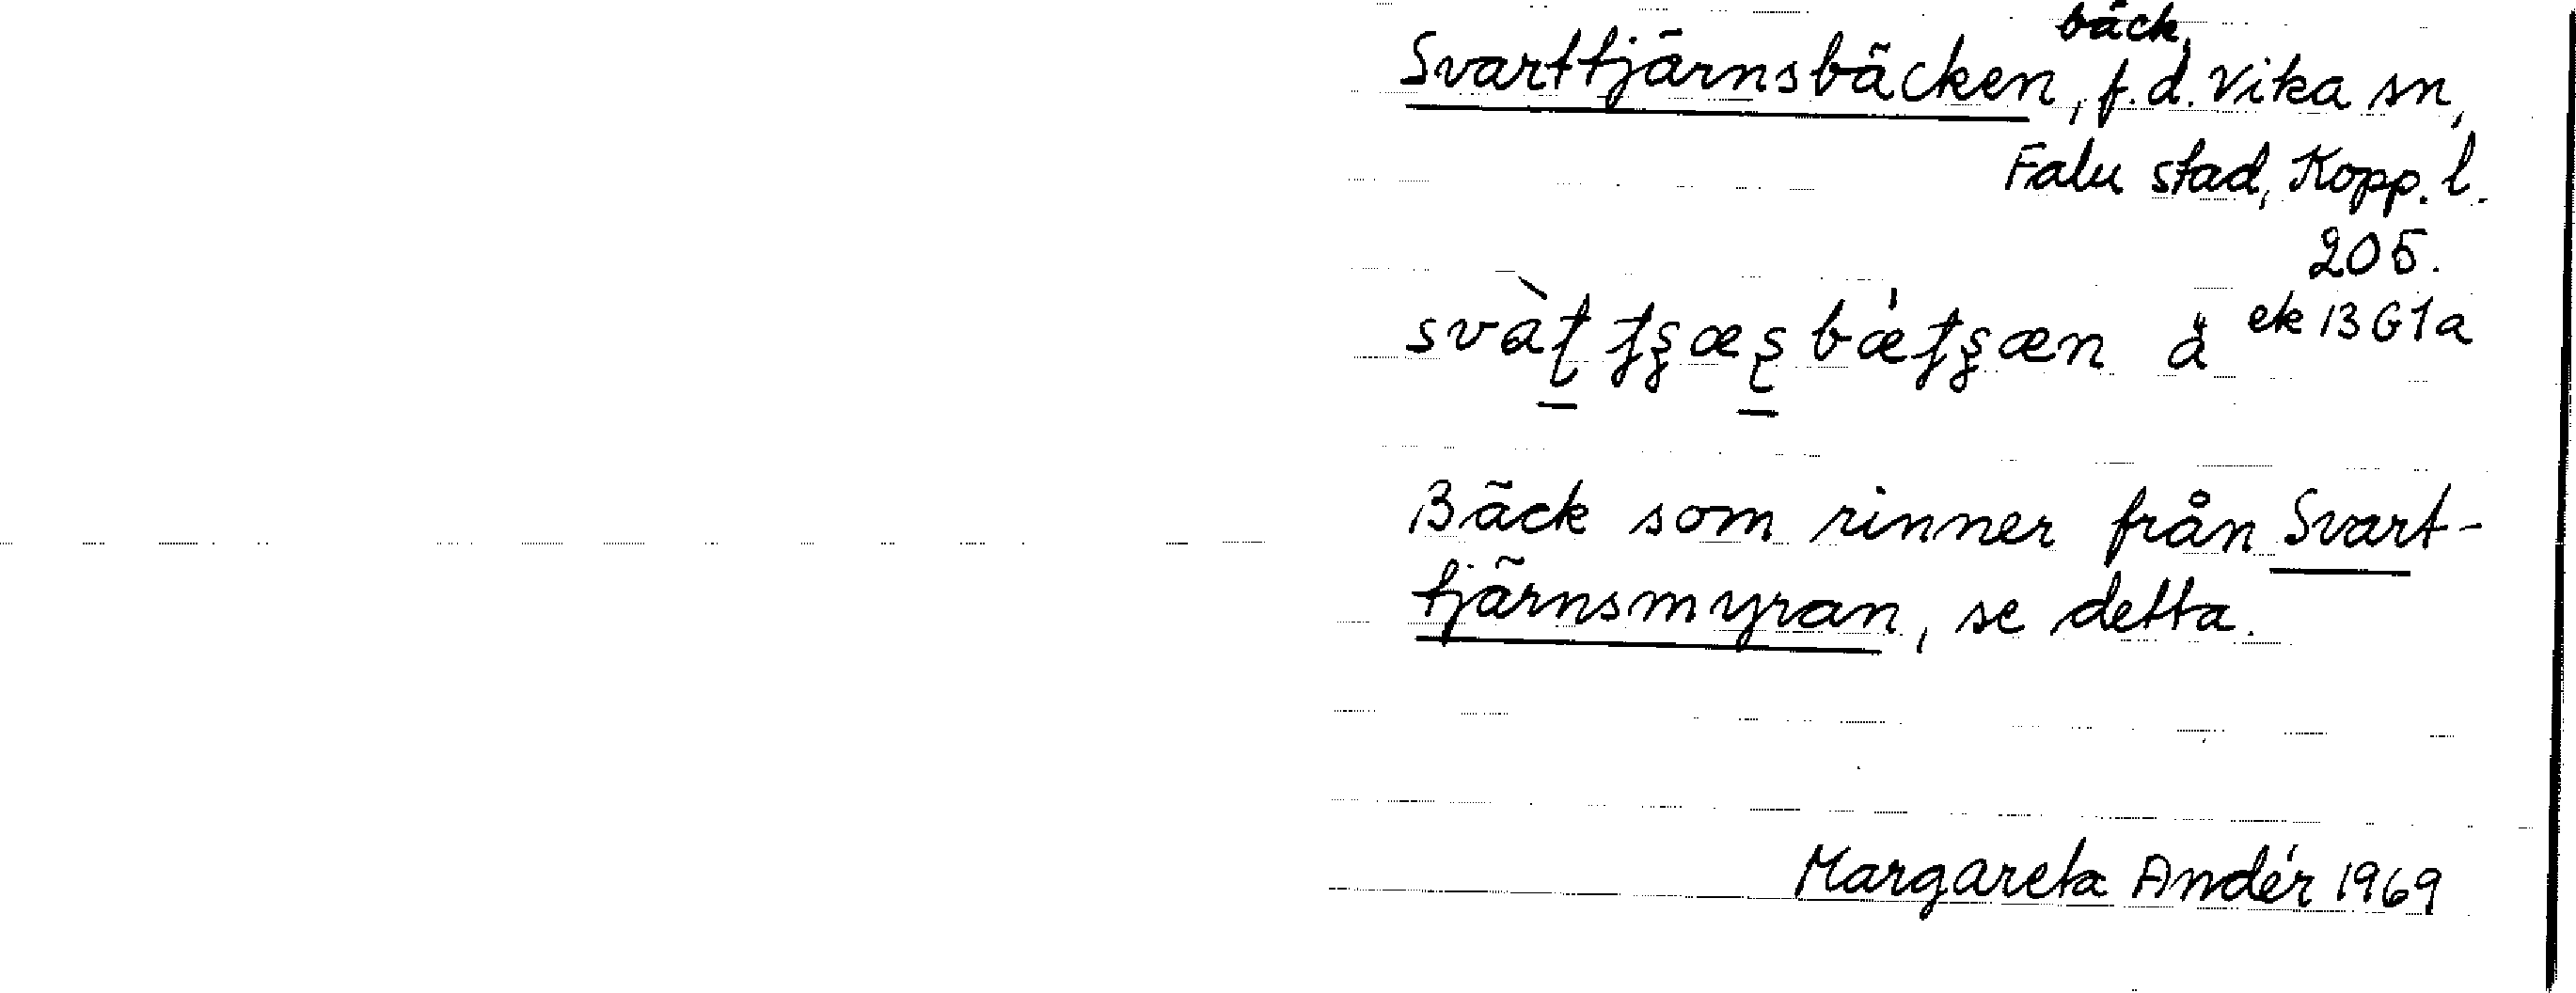 bäck,
Svarttjärnsbäcken, f.d. Vika sn,
Falu stad, Kopp. l.
205.
ek 13G1a
Bäck som rinner från Svart-
tjärnsmyran, se detta.
Margareta Andér 1969